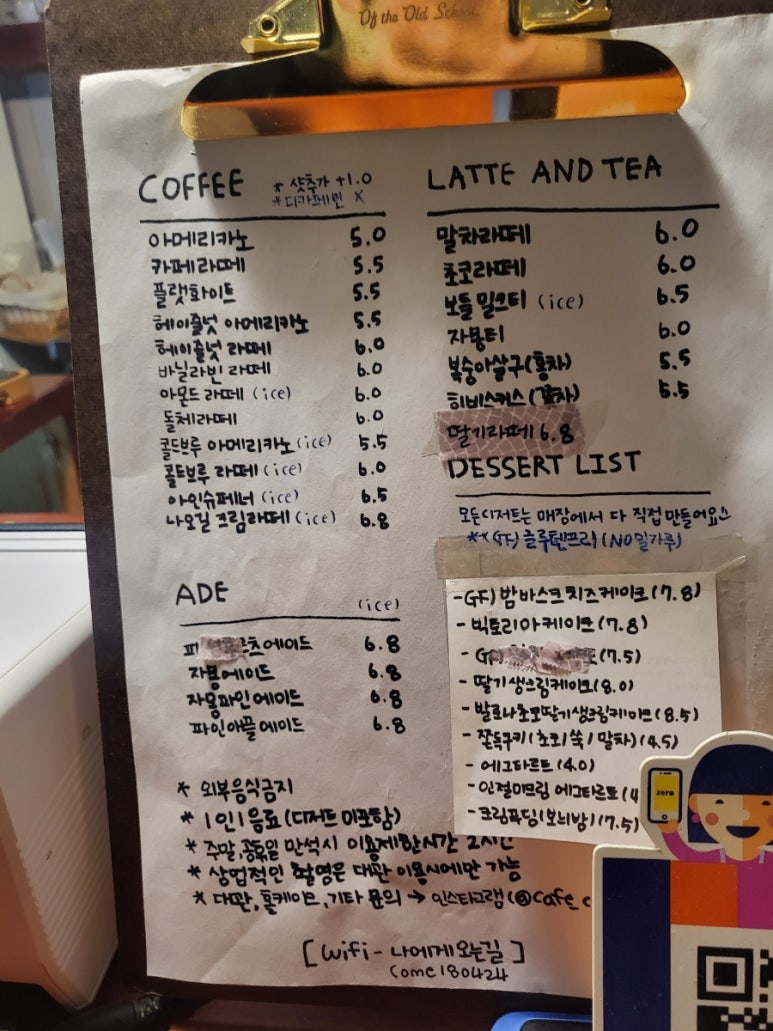 Of the Old School.
COFFEE
* 샷추가 +1.0
* 디카페인 X
아메리카노 5.0
카페라떼 5.5
플랫화이트 5.5
헤이즐넛 아메리카노 5.5
헤이즐넛 라떼 6.0
바닐라빈 라떼 6.0
아몬드 라떼 (ice) 6.0
돌체라떼 6.0
콜드브루 아메리카노 (ice) 5.5
콜드브루 라떼 (ice) 6.0
아인슈페너 (ice) 6.5
나오길 크림라떼 (ice) 6.8
ADE
(ice)
츠에이드 6.8
자몽에이드 6.8
자몽파인에이드 6.8
파인애플에이드 6.8
LATTE AND TEA
말차라떼 6.0
초코라떼 6.0
보틀 밀크티 (ice) 6.5
자몽티 6.0
복숭아살구(홍차) 5.5
히비스커스 5.5
딸기라떼 6.8
DESSERT LIST
모든디저트는 매장에서 다 직접 만들어요
**GF) 글루텐프리 (NO밀가루)
-GF) 밤 바스크 치즈케이크 (7.8)
- 빅토리아케이크 (7.8)
- GF) (7.5)
- 딸기생크림케이크 (8.0)
- 발로나초코딸기생크림케이크 (8.5)
- 쫀득쿠키 (초코 / 쑥 / 말차) (4.5)
- 에그타르트 (4.0)
- 인절미크림 에그타르트 (4
- 크림푸딩 (보늬밤) (7.5)
* 외부음식금지
* 1인 1음료 (디저트 미포함)
* 주말,공휴일 만석시 이용제한시간 2시간
* 상업적인 촬영은 대관 이용시에만 가능
* 대관, 홀케이크, 기타 문의 → 인스타그램 (@cafe_c
[Wifi - 나에게오는길]
come180424
zero